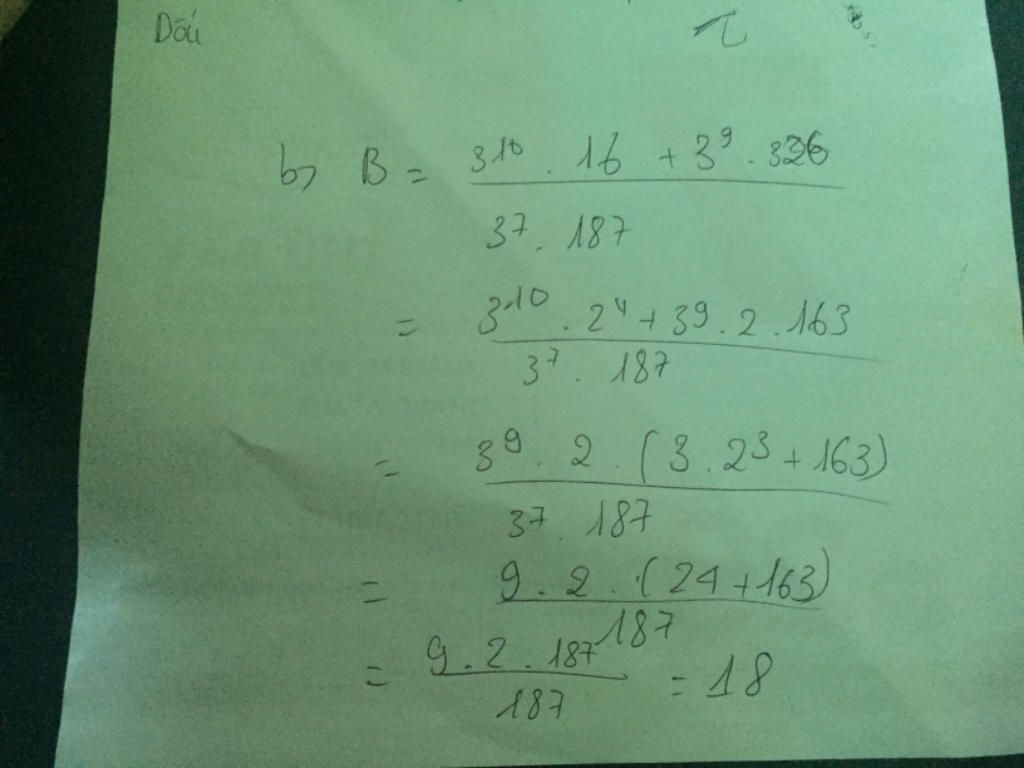 b) B = \frac{3^{10} . 16 + 3^9 . 326}{3^7 . 187}
= \frac{3^{10} . 2^4 + 3^9 . 2 . 163}{3^7 . 187}
= \frac{3^9 . 2 . (3 . 2^3 + 163)}{3^7 . 187}
= \frac{9 . 2 . (24 + 163)}{187}
= \frac{9 . 2 . 187}{187} = 18